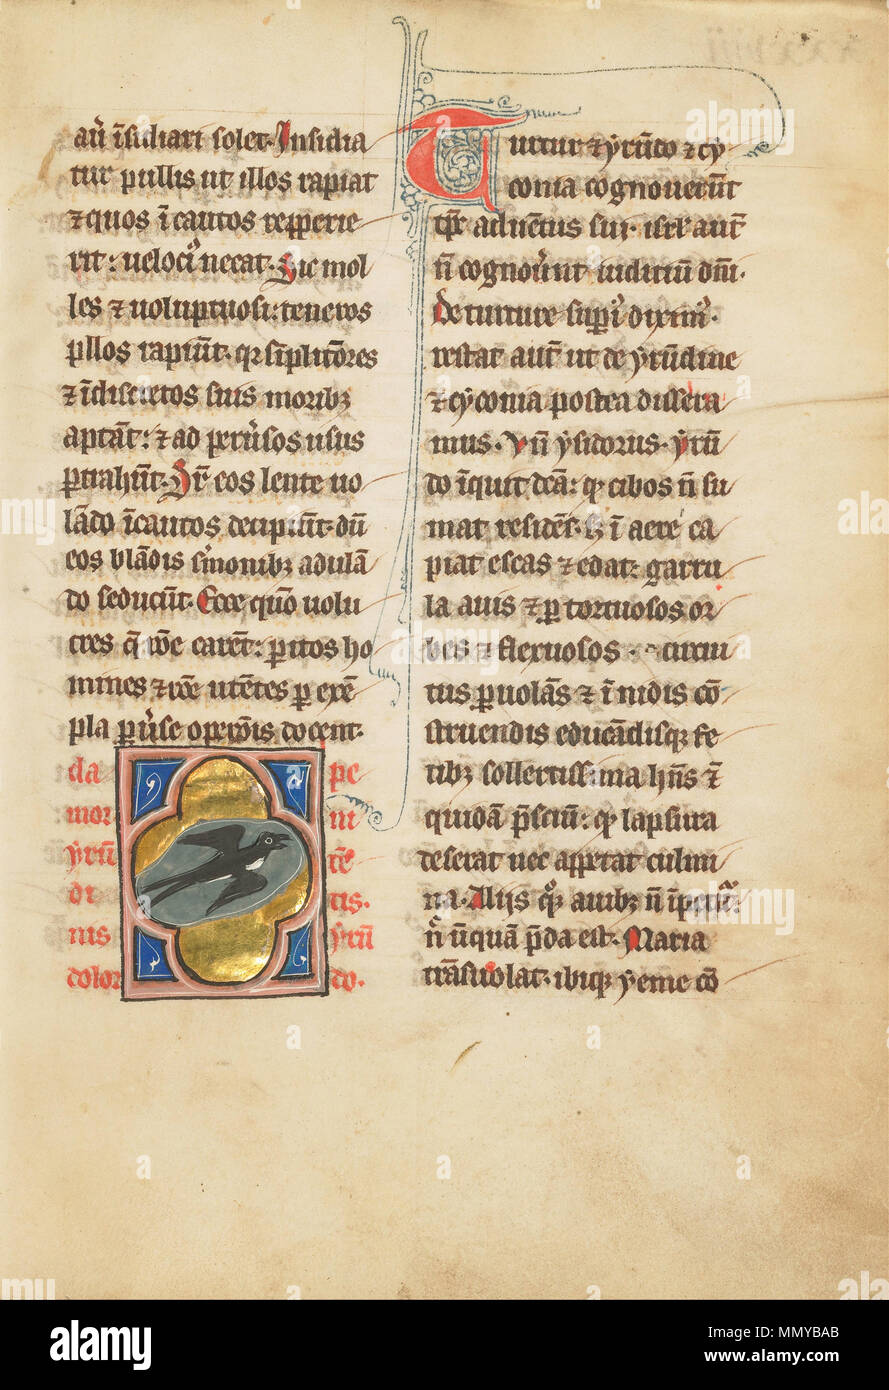 auū īsidiari solet. Insidia
tur pullis ut illos rapiat
⁊ quos īcautos repperie
rit: uelociꝰ necat. Sic mol
les ⁊ uoluptuosi: teneros
pllos rapiūt. qr sīplicōres
⁊ īdiscretos suis moribꝫ
aptāt: ⁊ ad peruͥsos usus
ꝑtrahūt. eos lente uo
lādo īcautos decipiūt. dū
eos blādis sͥmonibꝫ adulā
do seducūt. Ecce quō uolu
cres q̄ rōe carēt: ꝑitos ho
mines ⁊ rōe utētes ꝑ exē
pla ꝑuͥse oꝑatōis docent.
da pe
mor ni
yrū tē
di tis.
nis yrū
dolor do.
Turtur ⁊ yrūdo ⁊ cy
conia cognouerūt
tp̄r aduētus sui. isrl̄ aut̄
n̄ cognouͥut iudiciū dn̄i.
De turture supͥꝰ diximꝰ.
restat aut̄ ut de yrūdine
⁊ cyconia postea dissera
mus. ysidorus. yrū
do īquit dc̄a: qꝫ cibos n̄ su
mat residēs. sꝫ ī aere ca
piat escas ⁊ edat. garru
la auis ⁊ ꝑ tortuosos or
bes ⁊ flexuosos circui
tus ꝑuolās ⁊ ī nidis cō
struendis educādisqꝫ fe
tibꝫ sollertissima hn̄s ⁊
quidā p̄sciū: qꝫ lapsura
deserat nec appetat culmi
na. Alijs qꝫ auibꝫ n̄ īpetit̄.
n̄ ūquā p̄da est. Maria
trāsuolat. ibiqꝫ yeme cō
alamy
www.alamy.com
Image ID: MMYBAB